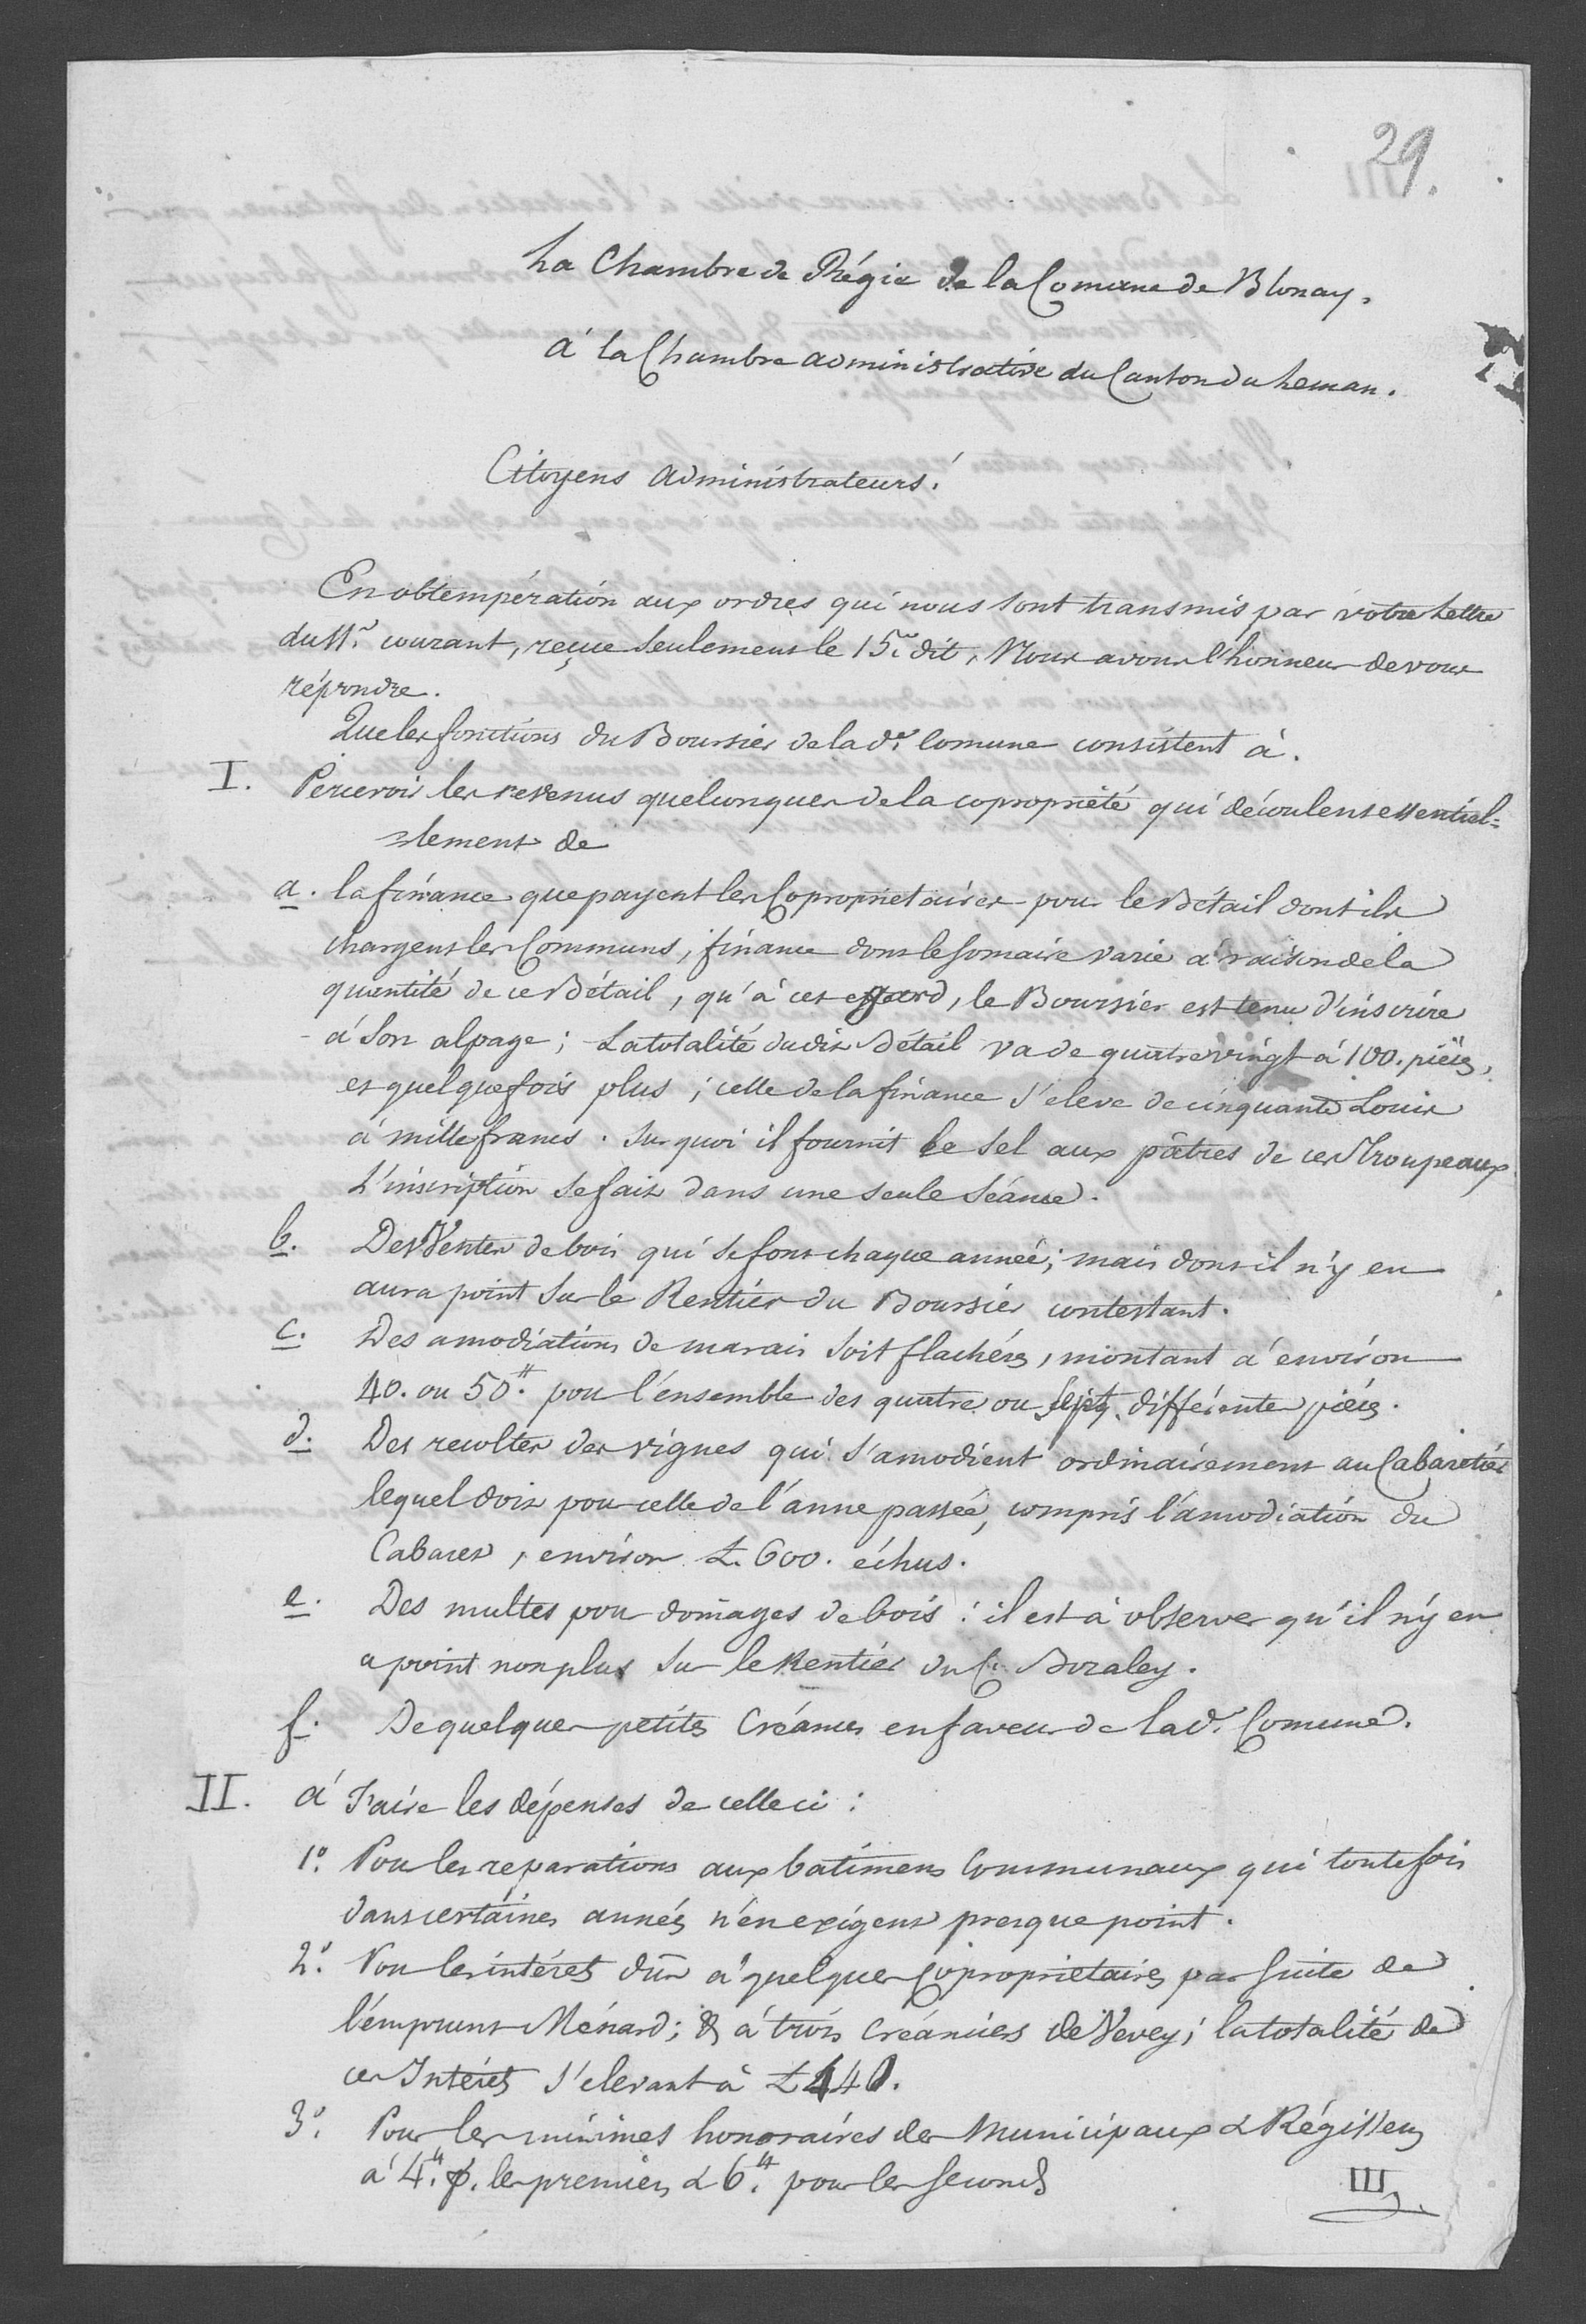 29.
La Chambre de Régie de la Comune de Blonay.
à la Chambre administrative du Canton du Leman.
Citoyens Administrateurs!
En obtempération aux ordres qui nous sont transmis par votre Lettre
du 11.e courant, reçue seulement le 15.e dit, Nous avons l'honneur de vous
répondre.
Que les fonctions du Boursier de lad.e Comune consistent à.
I. Percevoir les revenus quelconques de la copropriété qui découlent essentiel=
=lement de
a. la finance que payent les Coproprietaires pour le Bétail dont ils
chargent les Communs, finance dont le somaire varie à raison de la
quantité de ce Bétail, qu'à cet egard, le Boursier est tenu d'inscrire
à son alpage; La totalité dudit Bétail va de quatre vingt à 100. pièces,
et quelquefois plus; celle de la finance s'eleve de cinquante Louis
à mille francs. Sur quoi il fournit le sel aux pâtres de ces Troupeaux
L'inscription se fait dans une seule séance.
b. Des Ventes de bois qui se font chaque année; mais dont il n'y en
aura point sur le Rentier du Boursier contestant.
c. Des amodiations de marais soit flachéres, montant à environ
40. ou 50.# pour l'ensemble des quatre ou sept différentes pièces.
d. Des recoltes des vignes qui s'amodient ordinairement au Cabaretier
lequel doit pour celle de l'anne passée, compris l'amodiation du
Cabaret, environ L. 600. échus.
e. Des multes pour domages de bois: il est à observer qu'il n'y en
a point non plus sur le Rentier du C. Boraley.
f. De quelques petites Créances en faveur de lad.e Comune.
II. à Faire les dépenses de celle ci:
1.o Pour les reparations aux batimens Communaux qui toutefois
dans certaines années n'en exigent presque point.
2.o Pour les intérets dûs à quelques Coproprietaires par suite de
l'emprunt Ménard; & à trois Créanciers de Vevey; la totalité de
ces Intérets s'elevant à L 440.
3.o Pour les minimes honoraires des Municipaux & Régisseurs
à 4.# p. les premiers & 6.# pour les seconds
III.